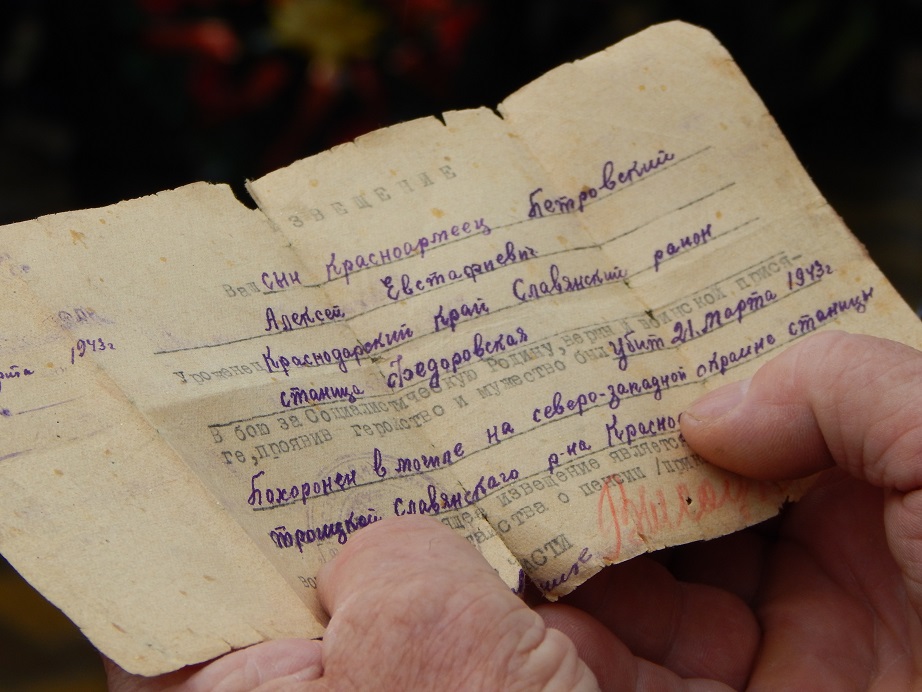 ЗВЕЩЕНИЕ
Ваш сын Красноармеец Петровский
Алексей Евстафиевич
Уроженец Краснодарский край Славянский район
станица Федоровская
В бою за Социалистическую Родину, верный воинской прися-
ге, проявив геройство и мужество был убит 21. марта 1943г
Похоронен в могиле на северо-западной окраине станицы
троицкой Славянского р-на Красно
извещение является
о пенсии /при
АСТИ
1943г